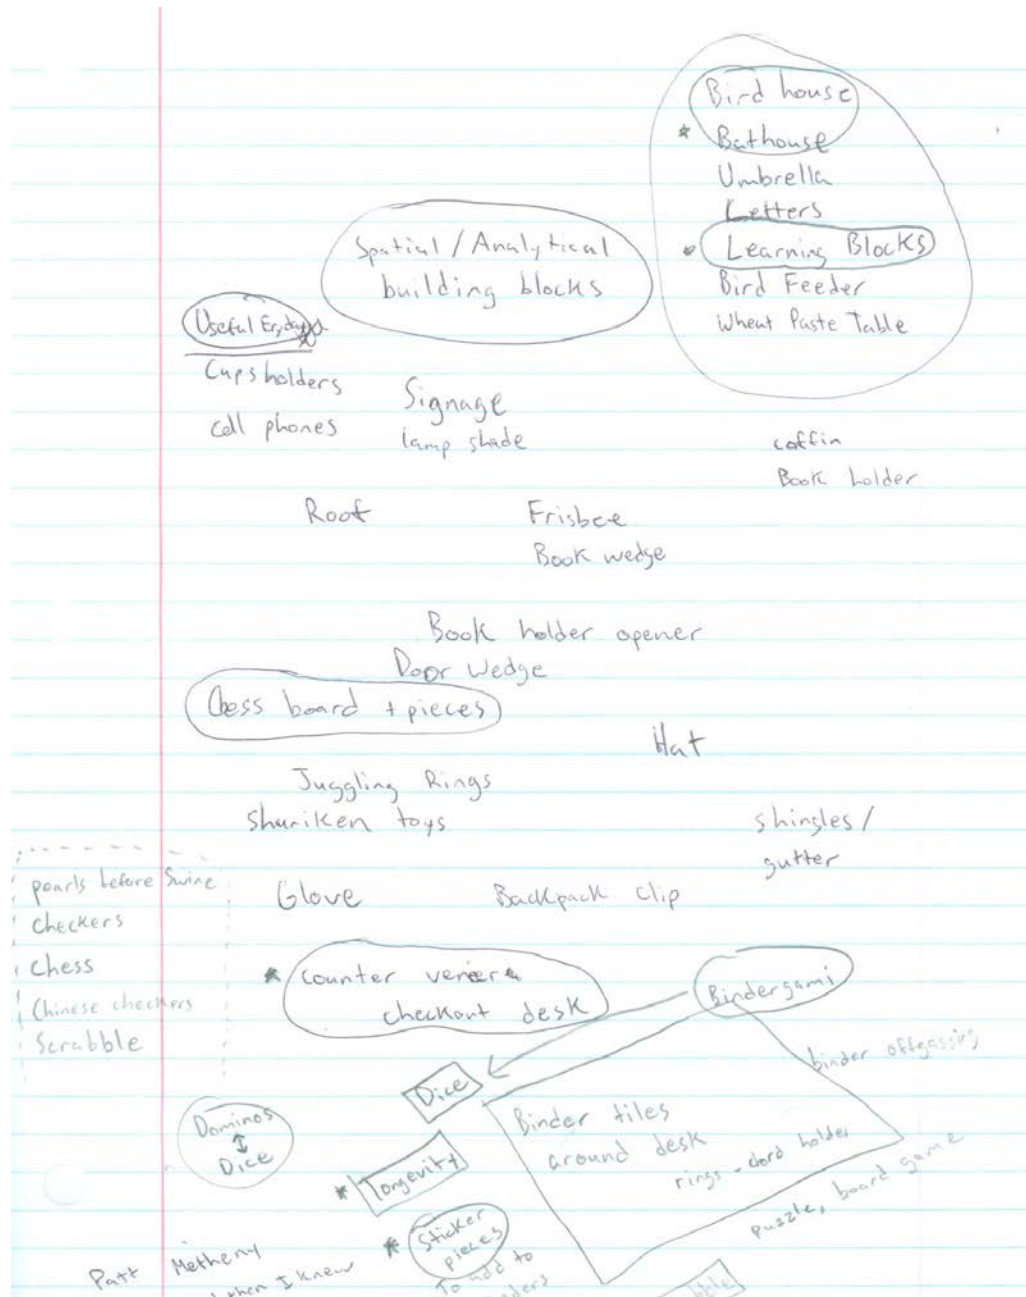 Bird house
Bathouse
Umbrella
Letters
Learning Blocks
Bird Feeder
Wheat Paste Table
Spatial / Analytical
building blocks
Useful
Cups holders
cell phones
Signage
lamp shade
coffin
Book holder
Roof
Frisbee
Book wedge
Book holder opener
Door Wedge
Chess board + pieces
Hat
Juggling Rings
Shuriken toys
shingles /
gutter
pearls before Swine
checkers
Chess
Chinese checkers
Scrabble
Glove
Backpack clip
counter
checkout desk
Bindergami
binder offgassing
Dice
Binder tiles
around desk
rings - holder
puzzle, board game
Dominos
↕
Dice
Longevity
Sticker
pieces
To add to
Patt Metheny
then I knew